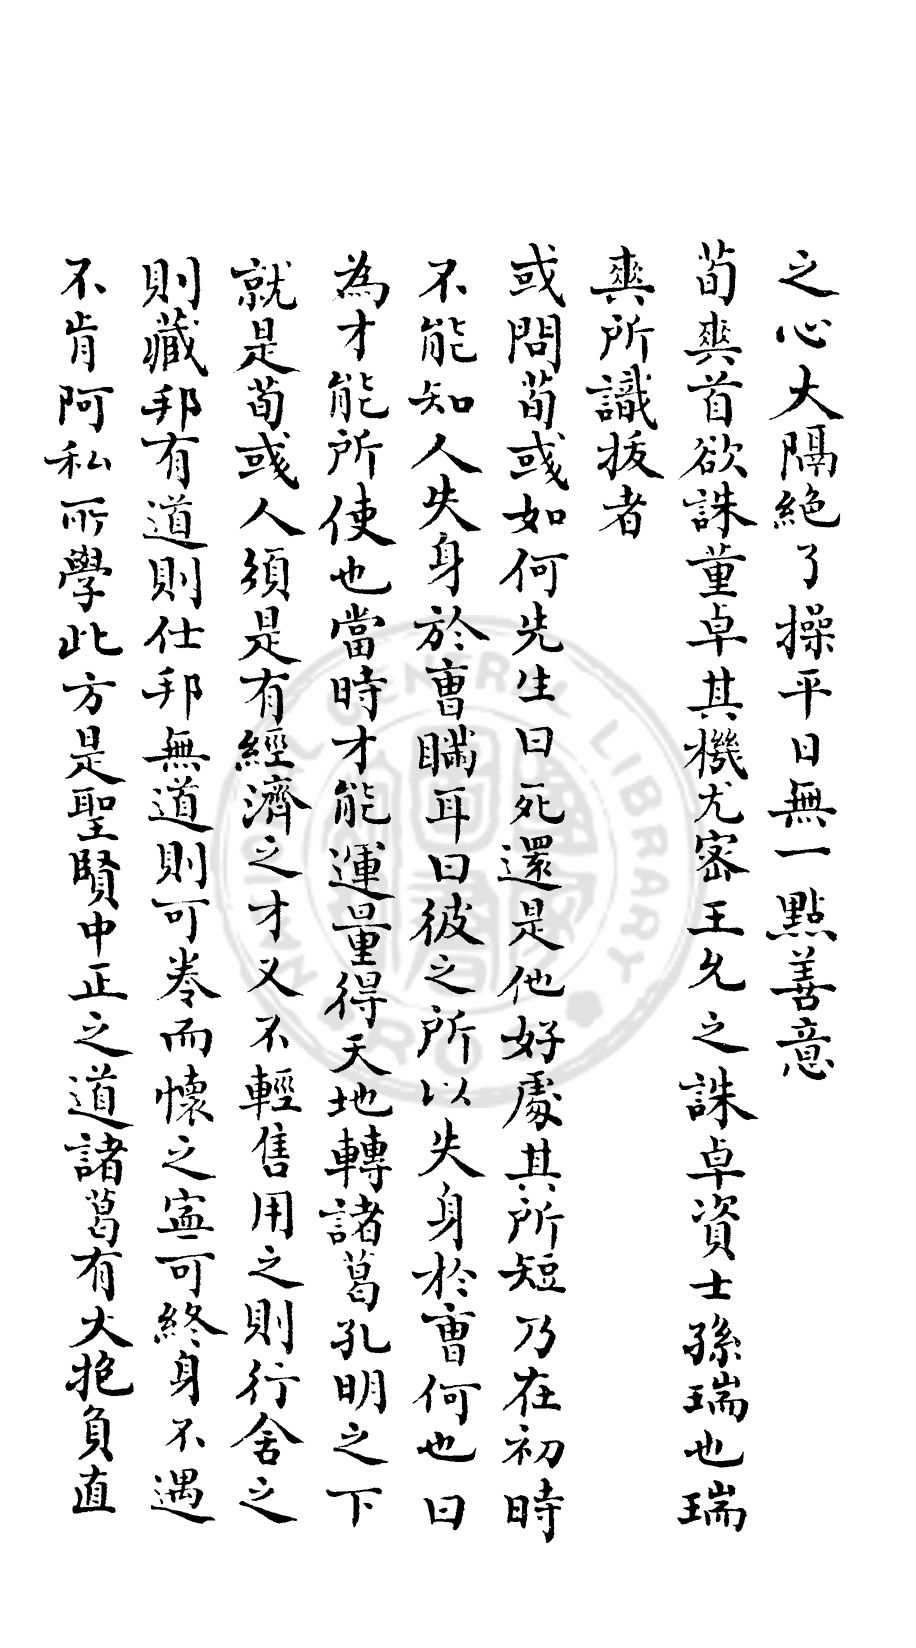 之心大隔絶了操平日無一點善意
荀爽首欲誅董卓其機尤密王允之誅卓資士孫瑞也瑞
爽所識拔者
或問荀彧如何先生曰死還是他好處其所短乃在初時
不能知人失身於曹瞞耳曰彼之所以失身於曹何也曰
為才能所使也當時才能運量得天地轉諸葛孔明之下
就是荀彧人須是有經濟之才又不輕售用之則行舍之
則藏邦有道則仕邦無道則可卷而懷之寧可終身不遇
不肯阿私所學此方是聖賢中正之道諸葛有大抱負直